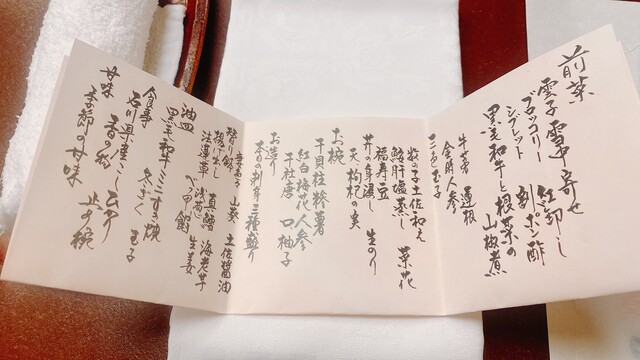 前菜
雲子 雪中寄せ
ブロッコリー 紅卸し
ジュレット 割ポン酢
黒毛和牛と根菜の
山椒煮
牛蒡 蓮根
金時人参
三色玉子
数の子土佐和え 菜花
鮟肝塩蒸し
福寿立
芹の身浸し 生のり
天 枸杞の実
お椀
干貝柱糝薯
紅白梅花人参
干社唐 口柚子
お造り
本日の刺身三種盛り
土佐醤油
山葵
揚げ出し 真鯛 海老芋
法蓮草 浅葱 生姜
べっ甲餡
油皿
黒毛和牛ミニすき焼
ねぎ 玉子
食事
石川県産こしひかり
香の物 止め椀
甘味
季節の甘味